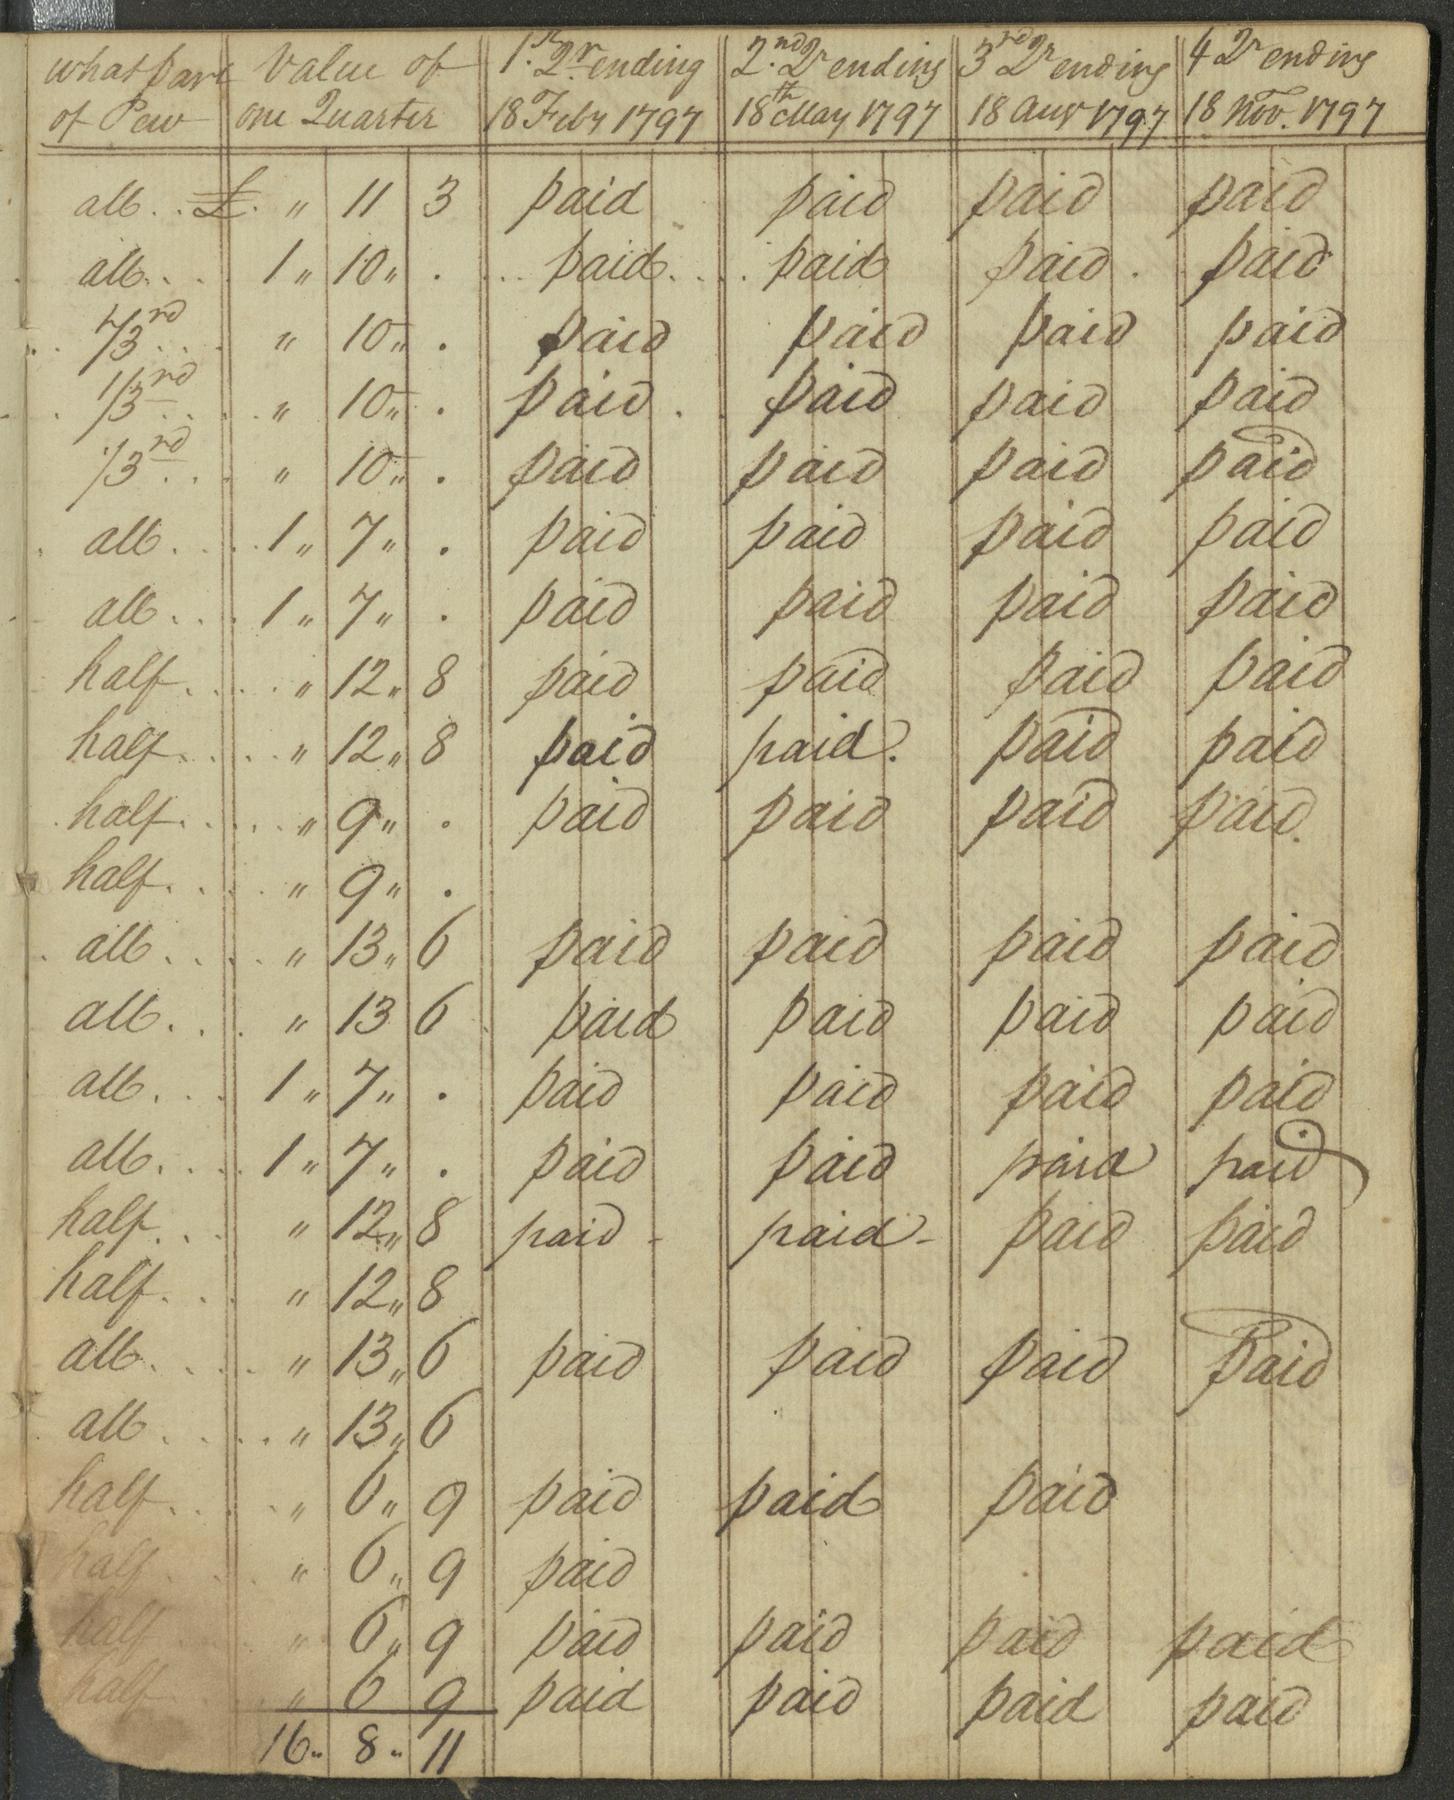 what part Value of 1.st Qr. ending 2.nd Qr ending 3rd Qr ending 4 Qr ending
of Pew one Quarter 18 Feby 1797 18th May 1797 18 Augt 1797 18 Nov. 1797
all . . £ . " 11 3 paid paid paid paid
all . . . . 1 " 10 " . . . paid . . . . paid paid . . paid
1/3rd . . . . " 10 " . paid paid paid paid
1/3rd . . . . " 10 " . paid . . paid paid paid
1/3rd . . . . " 10 " . paid paid paid paid
all . . . . 1 " 7 " . paid paid paid paid
all . . . . 1 " 7 " . paid paid paid paid
half . . . . " 12 " 8 paid paid paid paid
half . . . . " 12 " 8 paid paid . paid paid
half . . . . " 9 " . paid paid paid paid .
half . . . . " 9 " .
all . . . . " 13 " 6 paid paid paid paid
all . . . . " 13 6 paid paid paid paid
all . . . . 1 " 7 " . paid paid paid paid
all . . . . 1 " 7 " . paid paid paid paid
half . . . " 12 " 8 paid - paid - paid paid
half . . . " 12 " 8
all . . . . " 13 " 6 paid paid paid Paid
all . . . . " 13 " 6
half . . . . " 6 " 9 paid paid paid
half . . . . " 6 " 9 paid
half . . . " 6 " 9 paid paid paid paid
half . . . " 6 9 paid paid paid paid
16 " 8 " 11